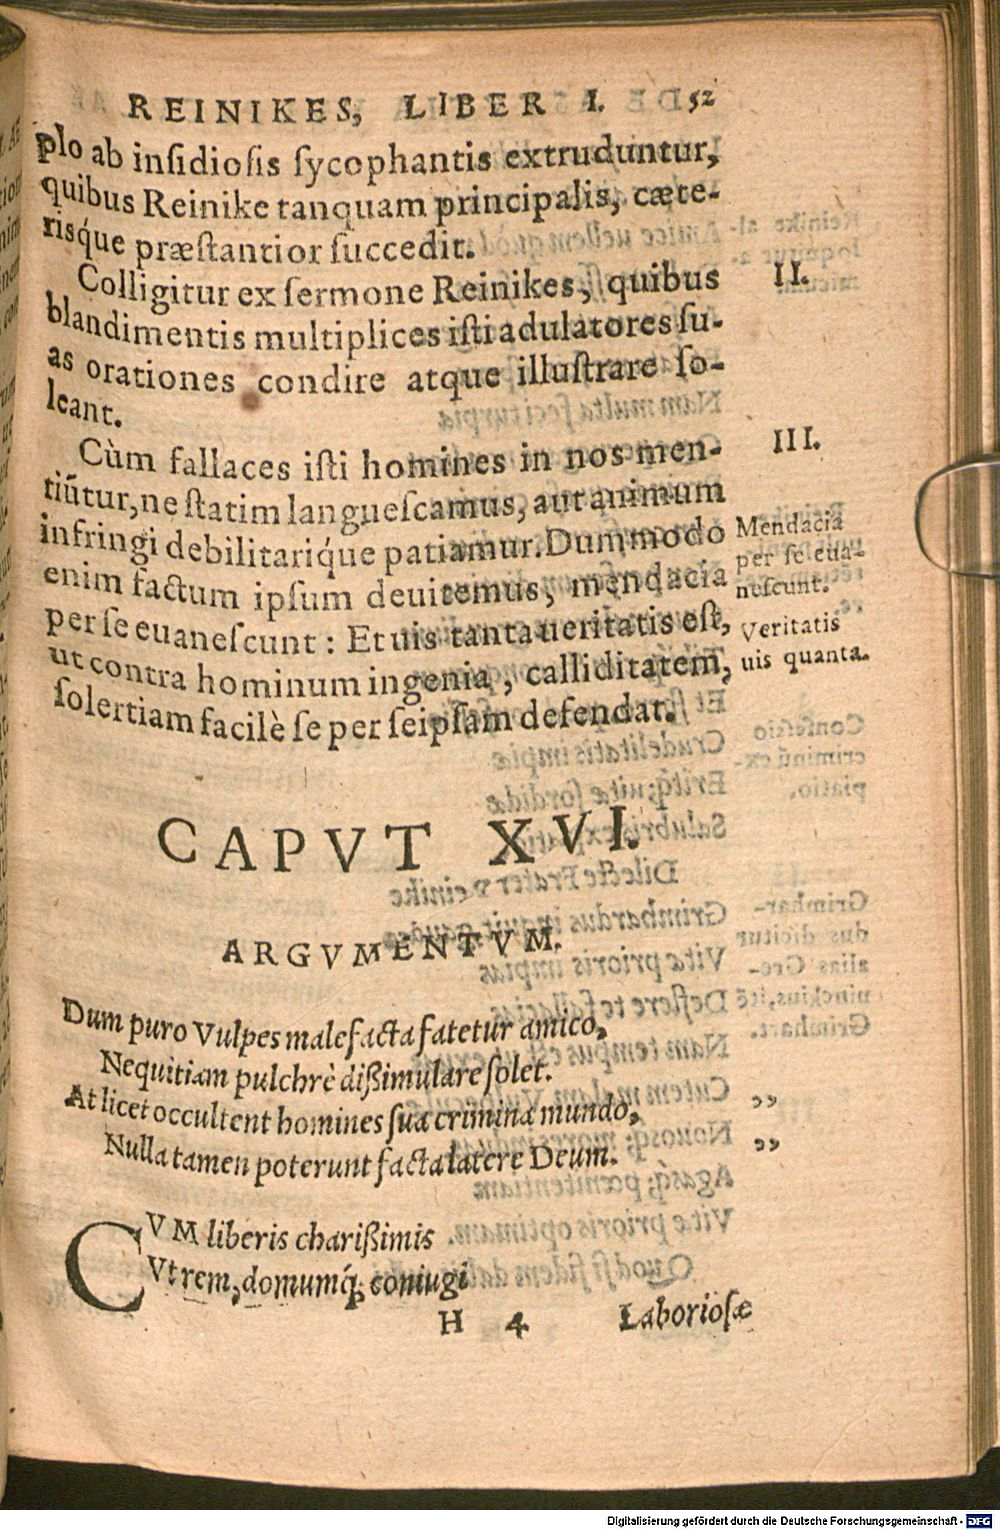 REINIKES, LIBER I. 52
plo ab insidiosis sycophantis extruduntur,
quibus Reinike tanquam principalis, cæte-
risq́ue præstantior succedit.
Colligitur ex sermone Reinikes, quibus
II.
blandimentis multiplices isti adulatores su-
as orationes condire atque illustrare so-
leant.
Cùm fallaces isti homines in nos men-
III.
tiūtur, ne statim languescamus, aut animum
infringi debilitariq́ue patiamur. Dummodo
enim factum ipsum deuitemus, mendacia
per se euanescunt: Et uis tanta ueritatis est,
ut contra hominum ingenia, calliditatem,
solertiam facilè se per seipsam defendat.
Mendacia
per se eua-
nescunt.
Veritatis
uis quanta.
CAPVT XVI.
ARGVMENTVM.
Dum puro Vulpes malefacta fatetur amico,
Nequitiam pulchrè dißimulare solet.
At licet occultent homines sua crimina mundo, ,,
Nulla tamen poterunt facta latere Deum. ,,
CVM liberis charißimis
Vt rem, domumq́; coniugi
H 4 Laboriosæ
Digitalisierung gefördert durch die Deutsche Forschungsgemeinschaft - DFG